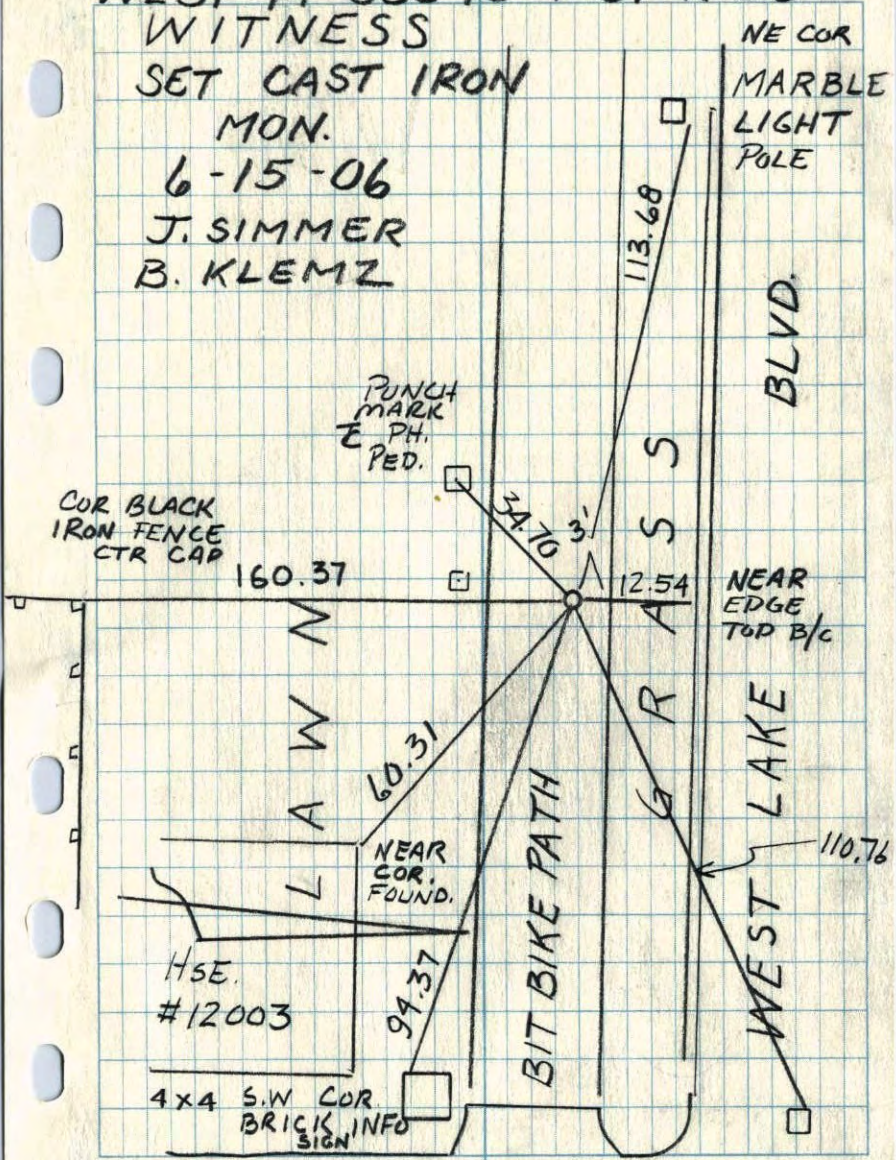 WITNESS
SET CAST IRON
MON.
6-15-06
J. SIMMER
B. KLEMZ
NE COR
MARBLE
LIGHT
POLE
113.68
BLVD.
PUNCH
MARK
PH.
PED.
34.70
3'
COR BLACK
IRON FENCE
CTR CAP
160.37
12.54
NEAR
EDGE
TOP B/C
LAWN
GRASS
60.31
NEAR
COR.
FOUND.
WEST LAKE
110.76
BIT BIKE PATH
HSE.
#12003
94.37
4x4 S.W COR
BRICK INFO
SIGN